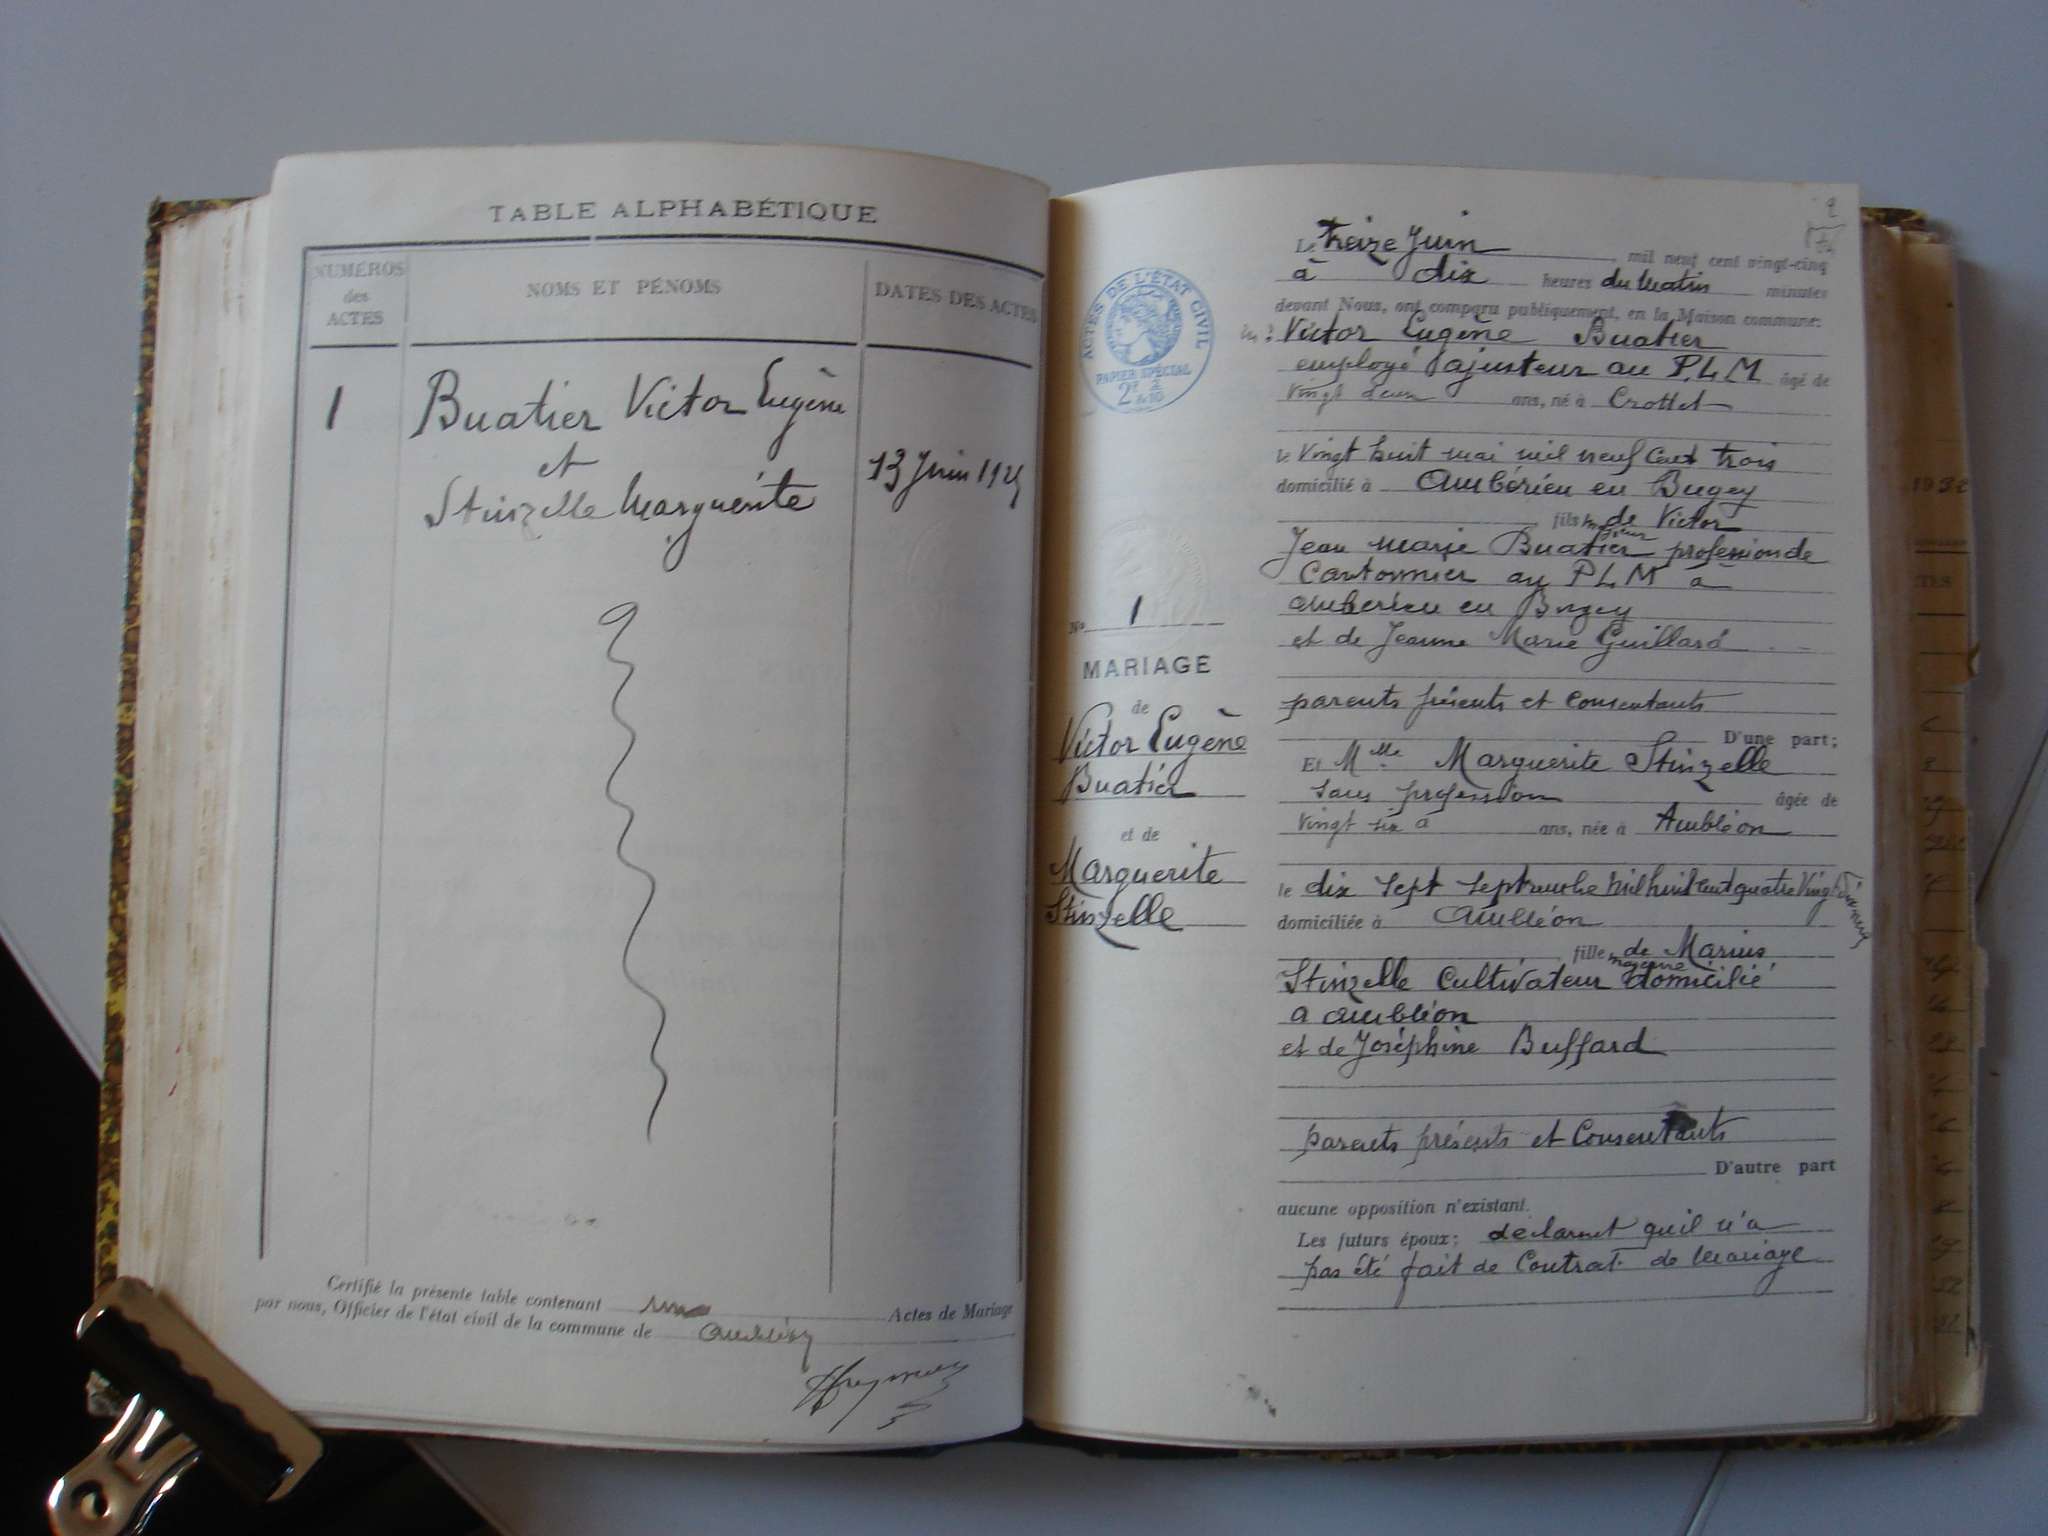 TABLE ALPHABÉTIQUE
NUMÉROS
des
ACTES
NOMS ET PÉNOMS
DATES DES ACTES
1
Buatier Victor Eugène
et
Stinzelle Marguerite
13 Juin 1925
Certifié la présente table contenant une Actes de Mariage
par nous, Officier de l'état civil de la commune de Ambléon
ACTES DE L'ÉTAT CIVIL
PAPIER SPÉCIAL
No 1
MARIAGE
de
Victor Eugène
Buatier
et de
Marguerite
Stinzelle
Le treize Juin, mil neuf cent vingt-cinq
à dix heures du matin minutes
devant Nous, ont comparu publiquement, en la Maison commune:
Victor Eugène Buatier
employé ajusteur au P.L.M âgé de
vingt deux ans, né à Crottet
le vingt huit mai mil neuf cent trois
domicilié à Ambérieu en Bugey
fils majeur de Victor
Jean Marie Buatier profession de
Cantonnier au P L M à
Ambérieu en Bugey
et de Jeanne Marie Guillard
parents présents et consentants
D'une part;
Et Mlle Marguerite Stinzelle
sans profession âgée de
vingt six a ans, née à Ambléon
le dix sept septembre mil huit cent quatre vingt
domiciliée à Ambléon
fille majeure de Marius
Stinzelle Cultivateur domicilié
a Ambléon
et de Joséphine Buffard
parents présents et Consentants
D'autre part
aucune opposition n'existant.
Les futurs époux; declarent quil n'a
pas été fait de Contrat de mariage
1932